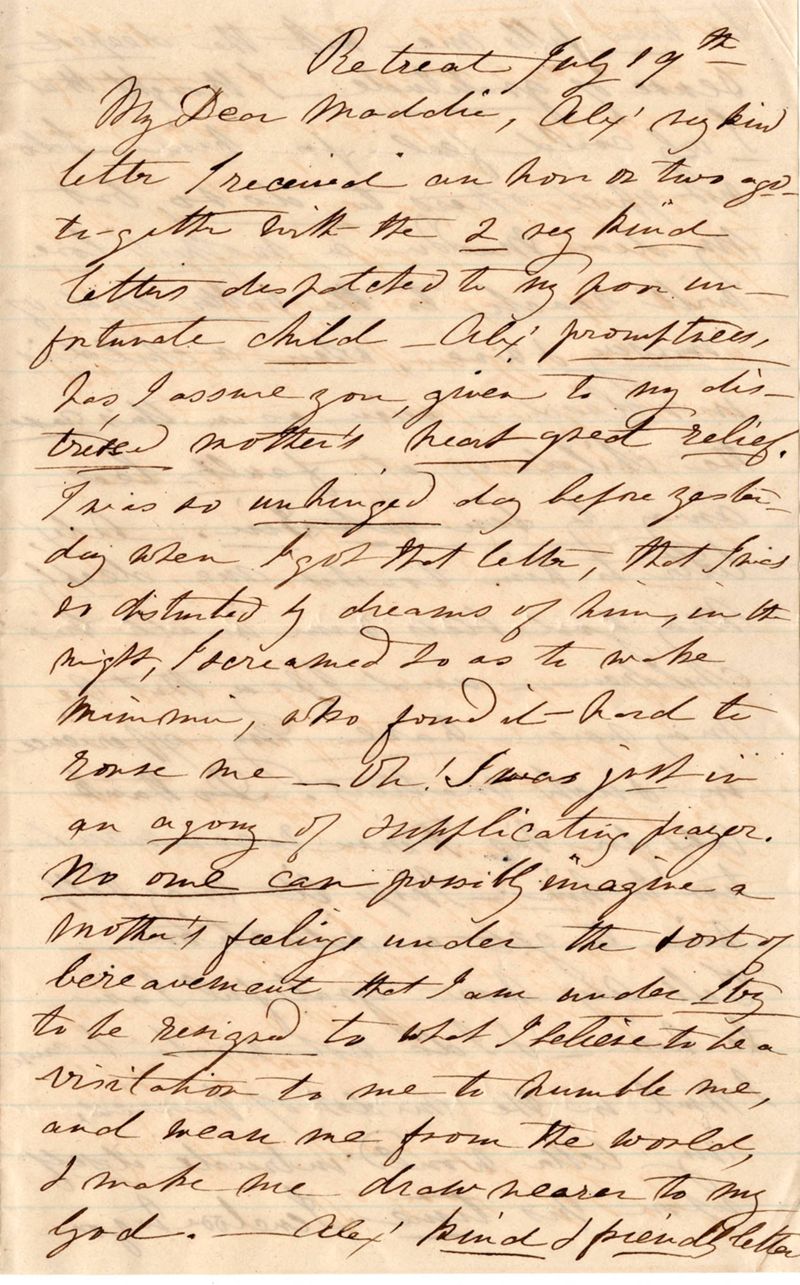 Retreat July 19th
My Dear Maddie, Alex' very kind
letter I received an hour or two ago -
together with the 2 very kind
letters dispatched to my poor un-
fortunate child - Alex' promptness,
has, I assure you, given to my dis-
tressed mother's heart great relief.
I was so unhinged day before yester-
day when I got that letter, that I was
so disturbed by dreams of him, in the
night, I screamed so as to wake
Mimmie, who found it hard to
rouse me - Oh! I was just in
an agony of supplicating prayer.
No one can possibly imagine a
mother's feelings under the sort of
bereavement that I am under I try
to be resigned to what I believe to be a
visitation to me to humble me,
and wean me from the world,
& make me draw nearer to my
God. - Alex' kind & friendly letter